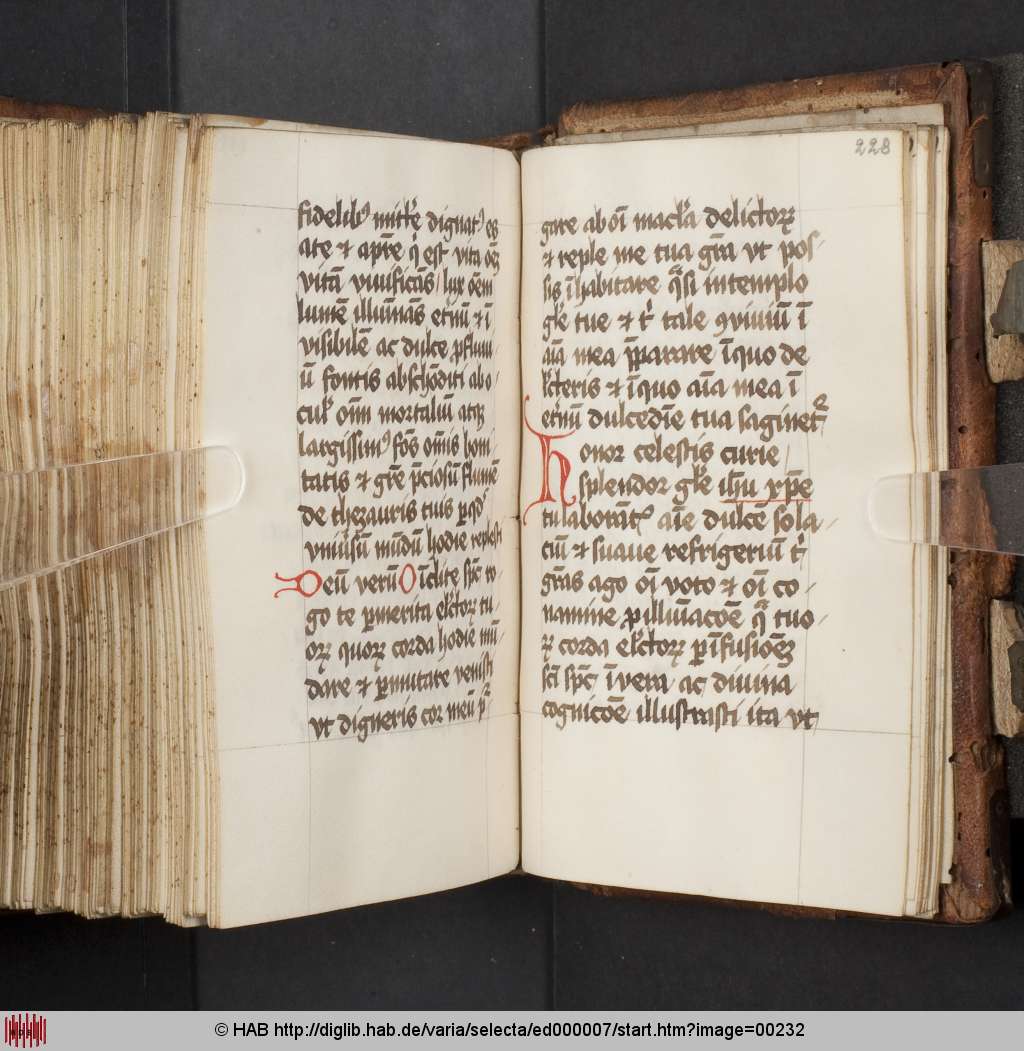 fidelibꝰ mitte͛ dignatꝰ es
a te ⁊ a pr̄e qͥ est vita oēꝫ
vitā viuificās / lux oēm
lumē illuīnās et̄nū ⁊ ī
visibilē ac dulce ꝓfluui
ū fontis abschōditi ab o
cul͛ oīm mortaliū atqꝫ
largissimꝰ fōs oīmis boni
tatis ⁊ gr̄e p̄ciosū flumē
de thezauris tuis ꝑ qd̕
vniūsū mūdū hodie replesti
Deū verū O īclite sp̄c ro
go te ꝑ merita elc̄torꝝ tu
orꝝ quorꝝ corda hodie mū
dare ⁊ ꝑmutare venisti
vt digneris cor meū pͬ
228
gare ab oī macl̕a delictorꝝ
⁊ reple me tua gr̄a vt pos
sis īhabitare qͣsi in templo
gl̕e tue ⁊ tͥ tale ꝯviuiū ī
aīa mea p̄parare ī quo de
lc̄teris ⁊ ī quo aīa mea ī
et̄nū dulcedīe tua saginetᷣ
Honor celestis curie /
splendor gl̕e ih̄u xp̄e
tu laborātꝭ aīe dulcē sola
ciū ⁊ suaue refrigeriū tͥ
gr̄as ago oī voto ⁊ oī co
namine ꝓ illuīacōe qͣ tuo
rꝝ corda elc̄torꝝ ꝑ īfusiōeꝫ
sc̄i sp̄c ī vera ac diuina
cognicōe illustrasti ita vt
© HAB http://diglib.hab.de/varia/selecta/ed000007/start.htm?image=00232